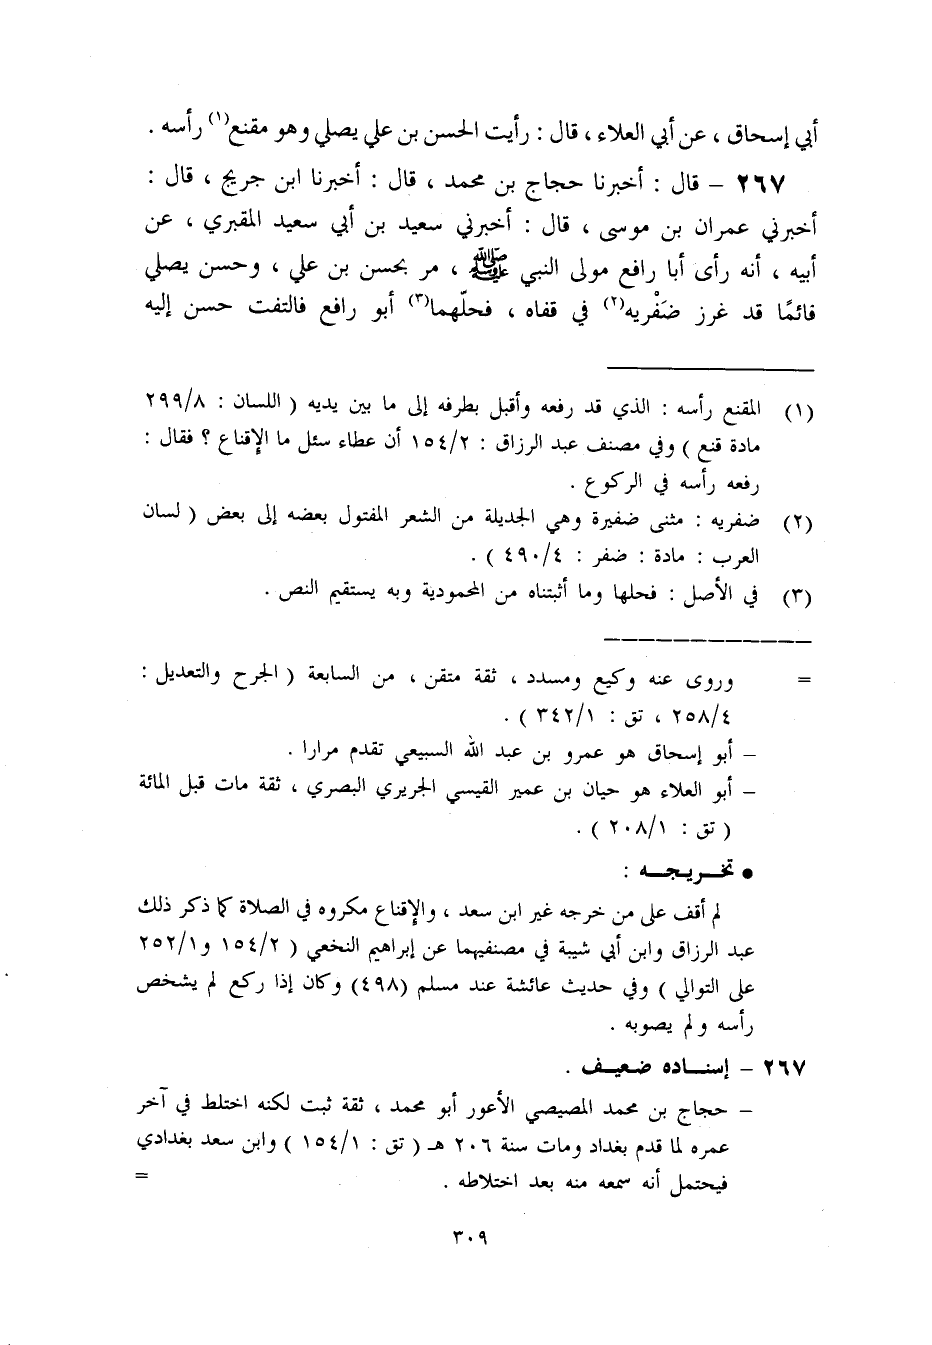 أبي إسحاق ، عن أبي العلاء ، قال : رأيت الحسن بن علي يصلي وهو مقنع(١) رأسه .
٢٦٧ – قال : أخبرنا حجاج بن محمد ، قال : أخبرنا ابن جريج ، قال :
أخبرني عمران بن موسى ، قال : أخبرني سعيد بن أبي سعيد المقبري ، عن
أبيه ، أنه رأى أبا رافع مولى النبي ﷺ ، مر بحسن بن علي ، وحسن يصلي
قائمًا قد غرز ضَفْريه(٢) في قفاه ، فحلّهما(٣) أبو رافع فالتفت حسن إليه
(١) المقنع رأسه : الذي قد رفعه وأقبل بطرفه إلى ما بين يديه ( اللسان : ٢٩٩/٨
مادة قنع ) وفي مصنف عبد الرزاق : ١٥٤/٢ أن عطاء سئل ما الإقناع ؟ فقال :
رفعه رأسه في الركوع .
(٢) ضفريه : مثنى ضفيرة وهي الجديلة من الشعر المفتول بعضه إلى بعض ( لسان
العرب : مادة : ضفر : ٤٩٠/٤ ) .
(٣) في الأصل : فحلها وما أثبتناه من المحمودية وبه يستقيم النص .
= وروى عنه وكيع ومسدد ، ثقة متقن ، من السابعة ( الجرح والتعديل :
٢٥٨/٤ ، تق : ٣٤٢/١ ) .
– أبو إسحاق هو عمرو بن عبد الله السبيعي تقدم مرارا .
– أبو العلاء هو حيان بن عمير القيسي الجريري البصري ، ثقة مات قبل المائة
( تق : ٢٠٨/١ ) .
● تخـــريجـــه :
لم أقف على من خرجه غير ابن سعد ، والإقناع مكروه في الصلاة كما ذكر ذلك
عبد الرزاق وابن أبي شيبة في مصنفيهما عن إبراهيم النخعي ( ١٥٤/٢ و٢٥٢/١
على التوالي ) وفي حديث عائشة عند مسلم (٤٩٨) وكان إذا ركع لم يشخص
رأسه ولم يصوبه .
٢٦٧ – إسنـــاده ضعيـــف .
– حجاج بن محمد المصيصي الأعور أبو محمد ، ثقة ثبت لكنه اختلط في آخر
عمره لما قدم بغداد ومات سنة ٢٠٦ هـ ( تق : ١٥٤/١ ) وابن سعد بغدادي
فيحتمل أنه سمعه منه بعد اختلاطه . =
٣٠٩